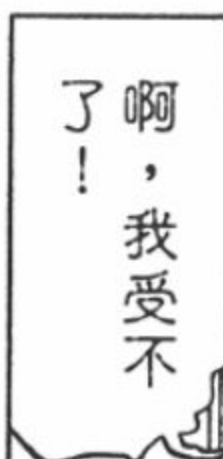 啊，我受不
了！